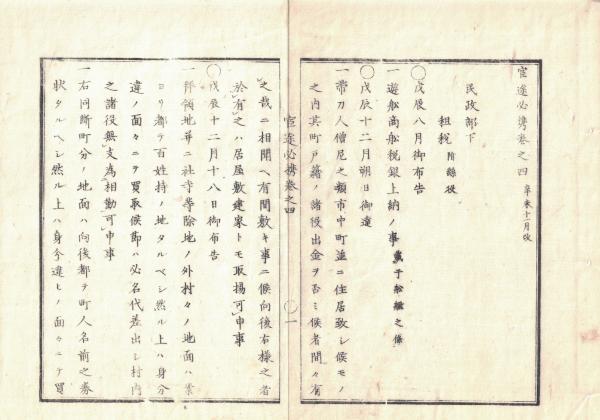 官途必携巻之四 辛未十一月改
民政部下
租税 附録後
〇戊辰八月御布告
一遊船商船税銀上納ノ事 載于船艦之條
〇戊辰十二月朔日御達
一帯刀人僧尼之類市中町並ニ住居致シ候モノ
之内其町戸籍ノ諸役出金ヲ否ミ候者間々有
官途必携巻之四 〇一
之哉ニ相聞ヘ有間敷キ事ニ候向後右様之者
於有之ハ居屋敷建家トモ取揚可申事
〇戊辰十二月十八日御布告
一拝領地并ニ社寺等除地ノ外村々ノ地面ハ素
ヨリ都テ百姓持ノ地タルベシ然ル上ハ身分
違ノ面々ニテ買取候節ハ必名代差出シ村内
之諸役無支為相勤可申事
一右同断町分ノ地面ハ向後都テ町人名前之券
状タルベシ然ル上ハ身分違ヒノ面々ニテ買